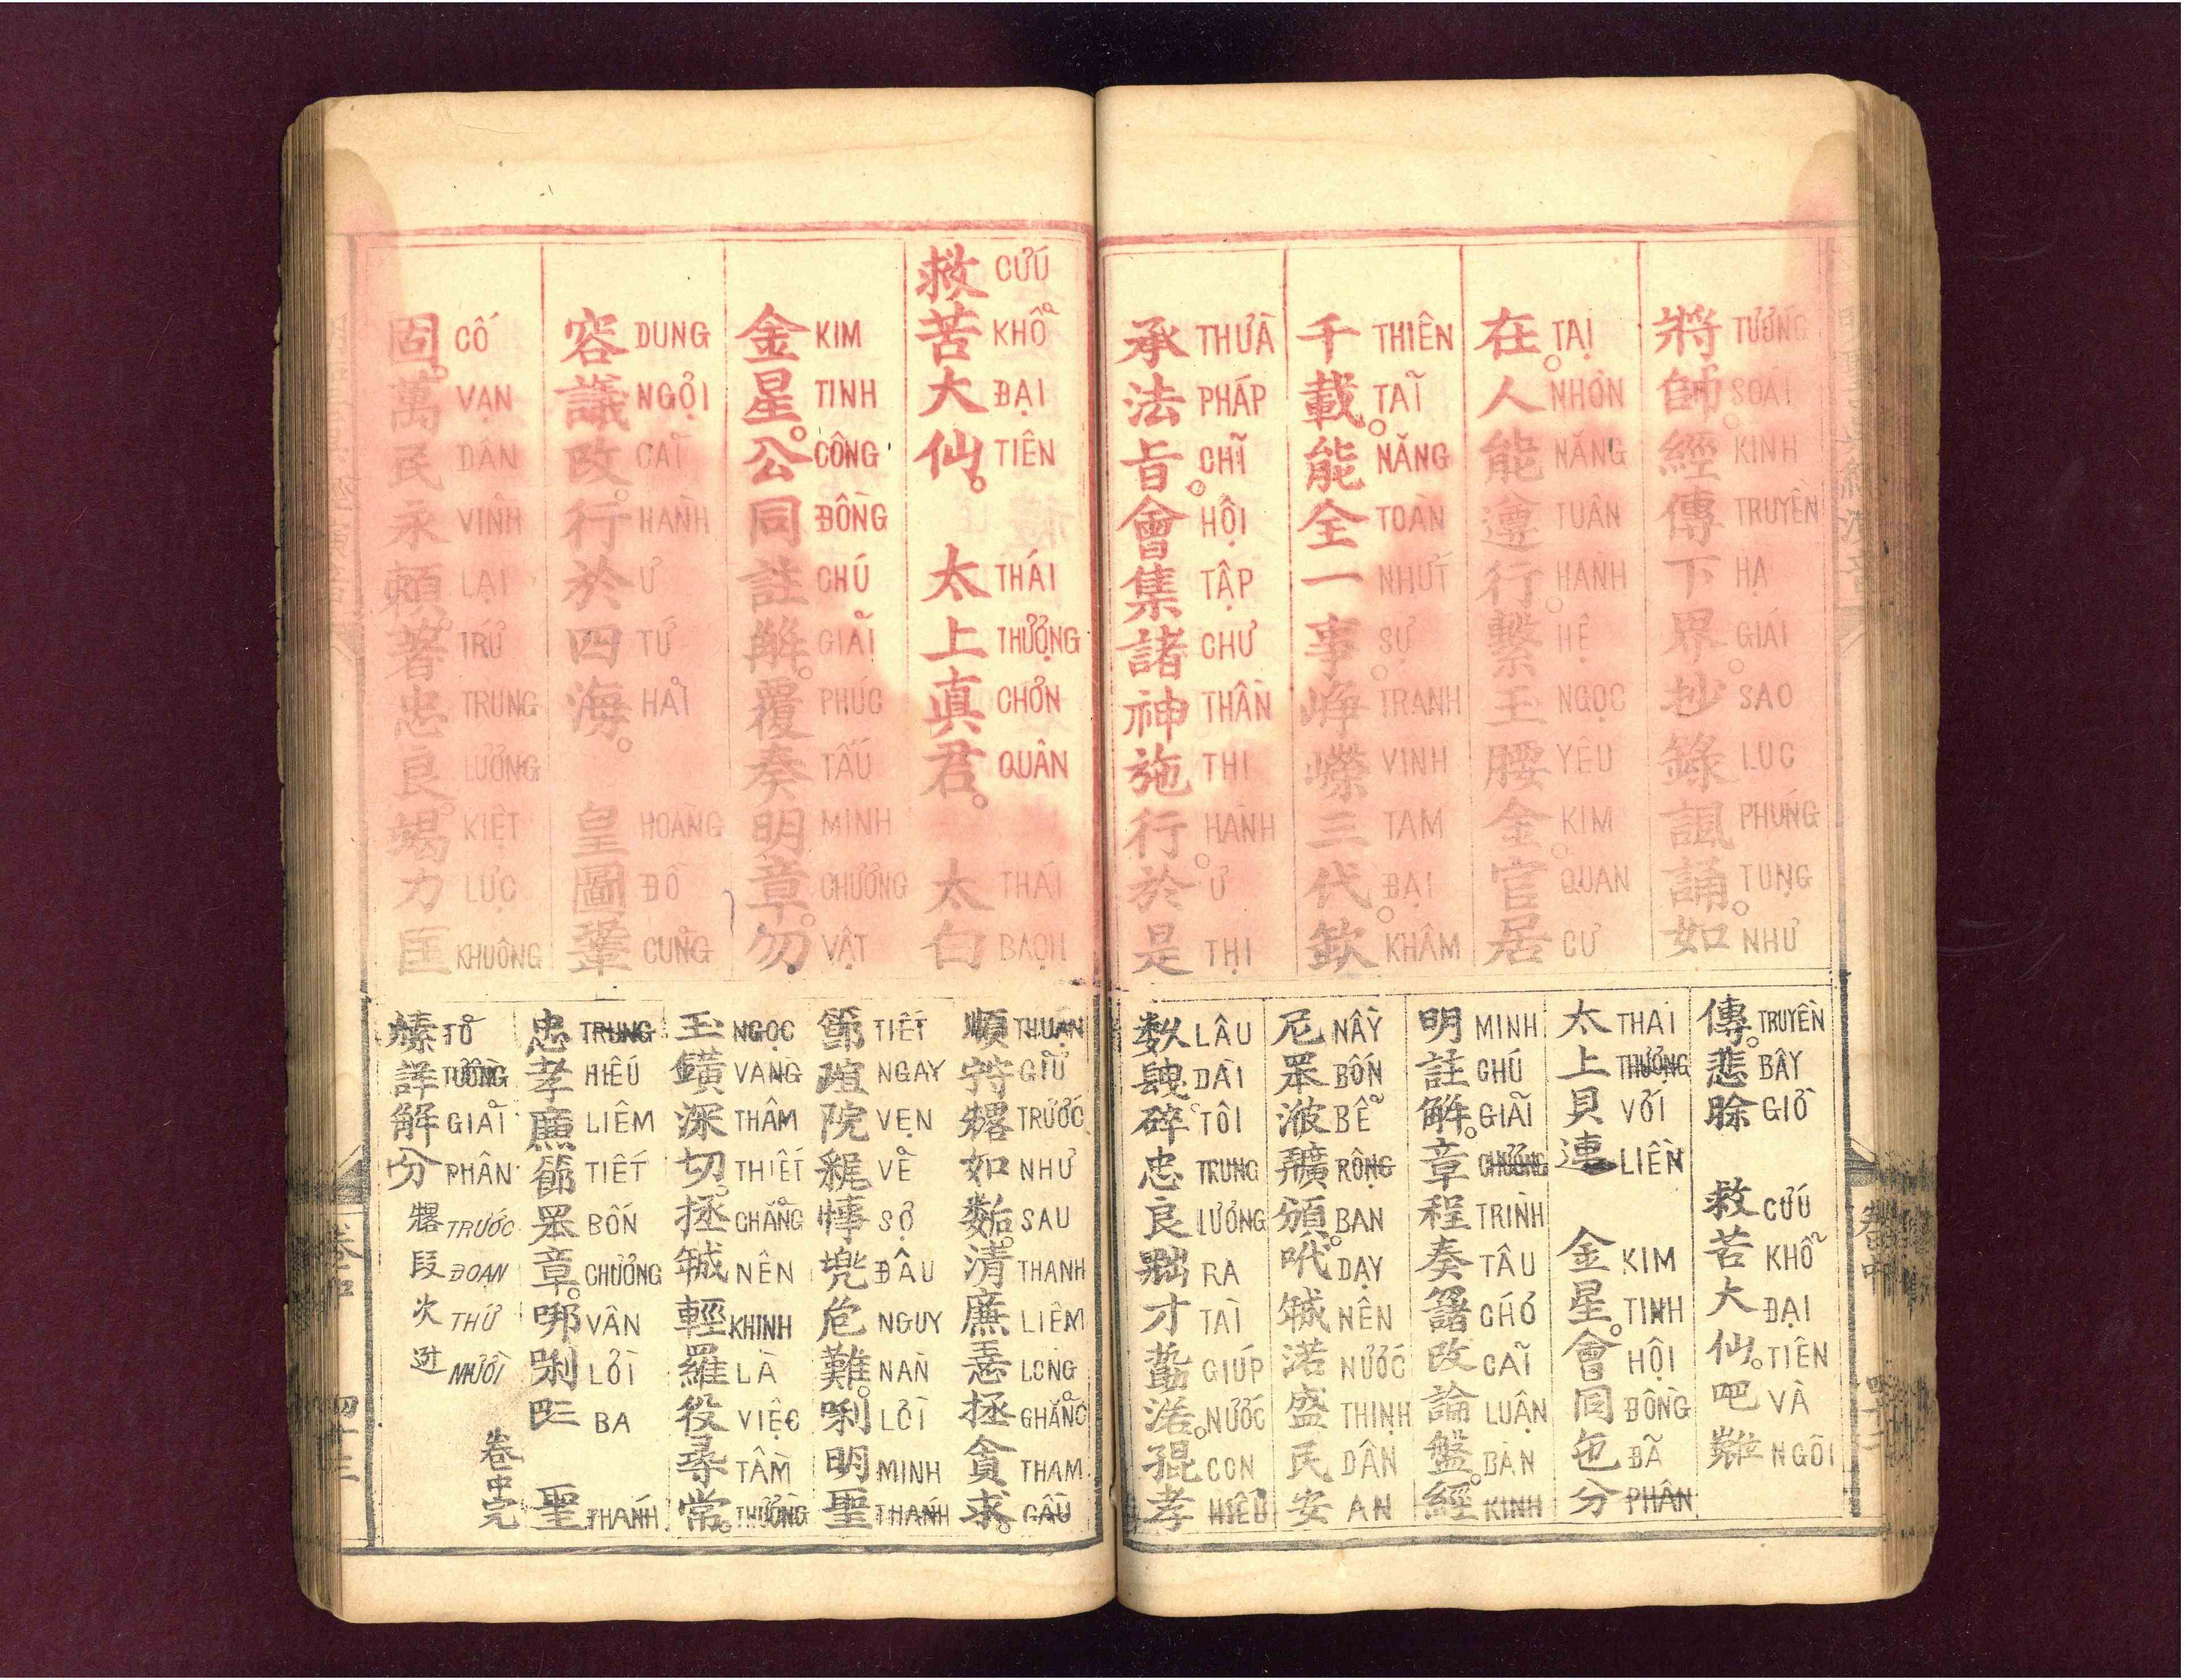 將 TƯỚNG 帥 SOÁI 經 KINH 傳 TRUYỀN 下 HẠ 界 GIÁI 抄 SAO 錄 LỤC 諷 PHÚNG 誦 TỤNG 如 NHƯ
在 TẠI 人 NHƠN 能 NĂNG 遵 TUÂN 行 HÀNH 繫 HỆ 玉 NGỌC 腰 YÊU 金 KIM 官 QUAN 居 CƯ
千 THIÊN 載 TẢI 能 NĂNG 全 TOÀN 一 NHỨT 事 SỰ 崢 TRANH 嶸 VINH 三 TAM 代 ĐẠI 欽 KHÂM
承 THỪA 法 PHÁP 旨 CHĨ 會 HỘI 集 TẬP 諸 CHƯ 神 THẦN 施 THI 行 HÀNH 於 Ư 是 THỊ
傳 TRUYỀN 悲 BÂY 賒 GIỜ 救 CỨU 苦 KHỔ 大 ĐẠI 仙 TIÊN 吧 VÀ NGÔI
太 THÁI 上 THƯỢNG 貝 VỚI 連 LIỀN 金 KIM 星 TINH 會 HỘI 同 ĐỒNG 㐌 ĐÃ 分 PHÂN
明 MINH 註 CHÚ 解 GIÃI 章 CHƯƠNG 程 TRÌNH 奏 TÂU CHỚ 改 CÃI 論 LUẬN 盤 BÀN 經 KINH
尼 NẦY 罘 BỐN 波 BỂ RỘNG 頒 BAN 吠 DẠY NÊN 渃 NƯỚC 盛 THỊNH 民 DÂN 安 AN
數 LÂU DÀI 碎 TÔI 忠 TRUNG 良 LƯƠNG RA 才 TÀI GIÚP 渃 NƯỚC 猑 CON 孝 HIẾU
救 CỨU 苦 KHỔ 大 ĐẠI 仙 TIÊN 太 THÁI 上 THƯỢNG 真 CHƠN 君 QUÂN 太 THÁI 白 BẠCH
金 KIM 星 TINH 公 CÔNG 同 ĐỒNG 註 CHÚ 解 GIẢI 覆 PHÚC 奏 TẤU 明 MINH 章 CHƯƠNG 勿 VẬT
容 DUNG 議 NGỢI 改 CẢI 行 HÀNH 於 Ư 四 TỨ 海 HẢI 皇 HOÀNG 圖 ĐỒ 鞏 CUNG
固 CỐ 萬 VẠN 民 DÂN 永 VĨNH 賴 LẠI 著 TRỨ 忠 TRUNG 良 LƯƠNG 竭 KIỆT 力 LỰC 匡 KHUÔNG
順 THUẬN GIỮ TRƯỚC 如 NHƯ SAU 清 THANH 廉 LIÊM LÒNG 拯 CHẲNG 貪 THAM 求 CẦU
節 TIẾT NGAY 院 VẸN VỀ SỢ 兜 ĐÂU 危 NGUY 難 NÀN LỜI 明 MINH 聖 THÁNH
玉 NGỌC VÀNG 深 THÂM 切 THIẾT 拯 CHẲNG NÊN 輕 KHINH 羅 LÀ 役 VIỆC 尋 TẦM 常 THƯỜNG
忠 TRUNG 孝 HIẾU 廉 LIÊM 節 TIẾT 罘 BỐN 章 CHƯƠNG VÂN LỜI BA 聖 THÁNH
TỎ 詳 TƯỜNG 解 GIẢI 分 PHÂN TRƯỚC 段 ĐOẠN 次 THỨ MƯỜI
卷中完
卷中
四十三
卷中
四十二